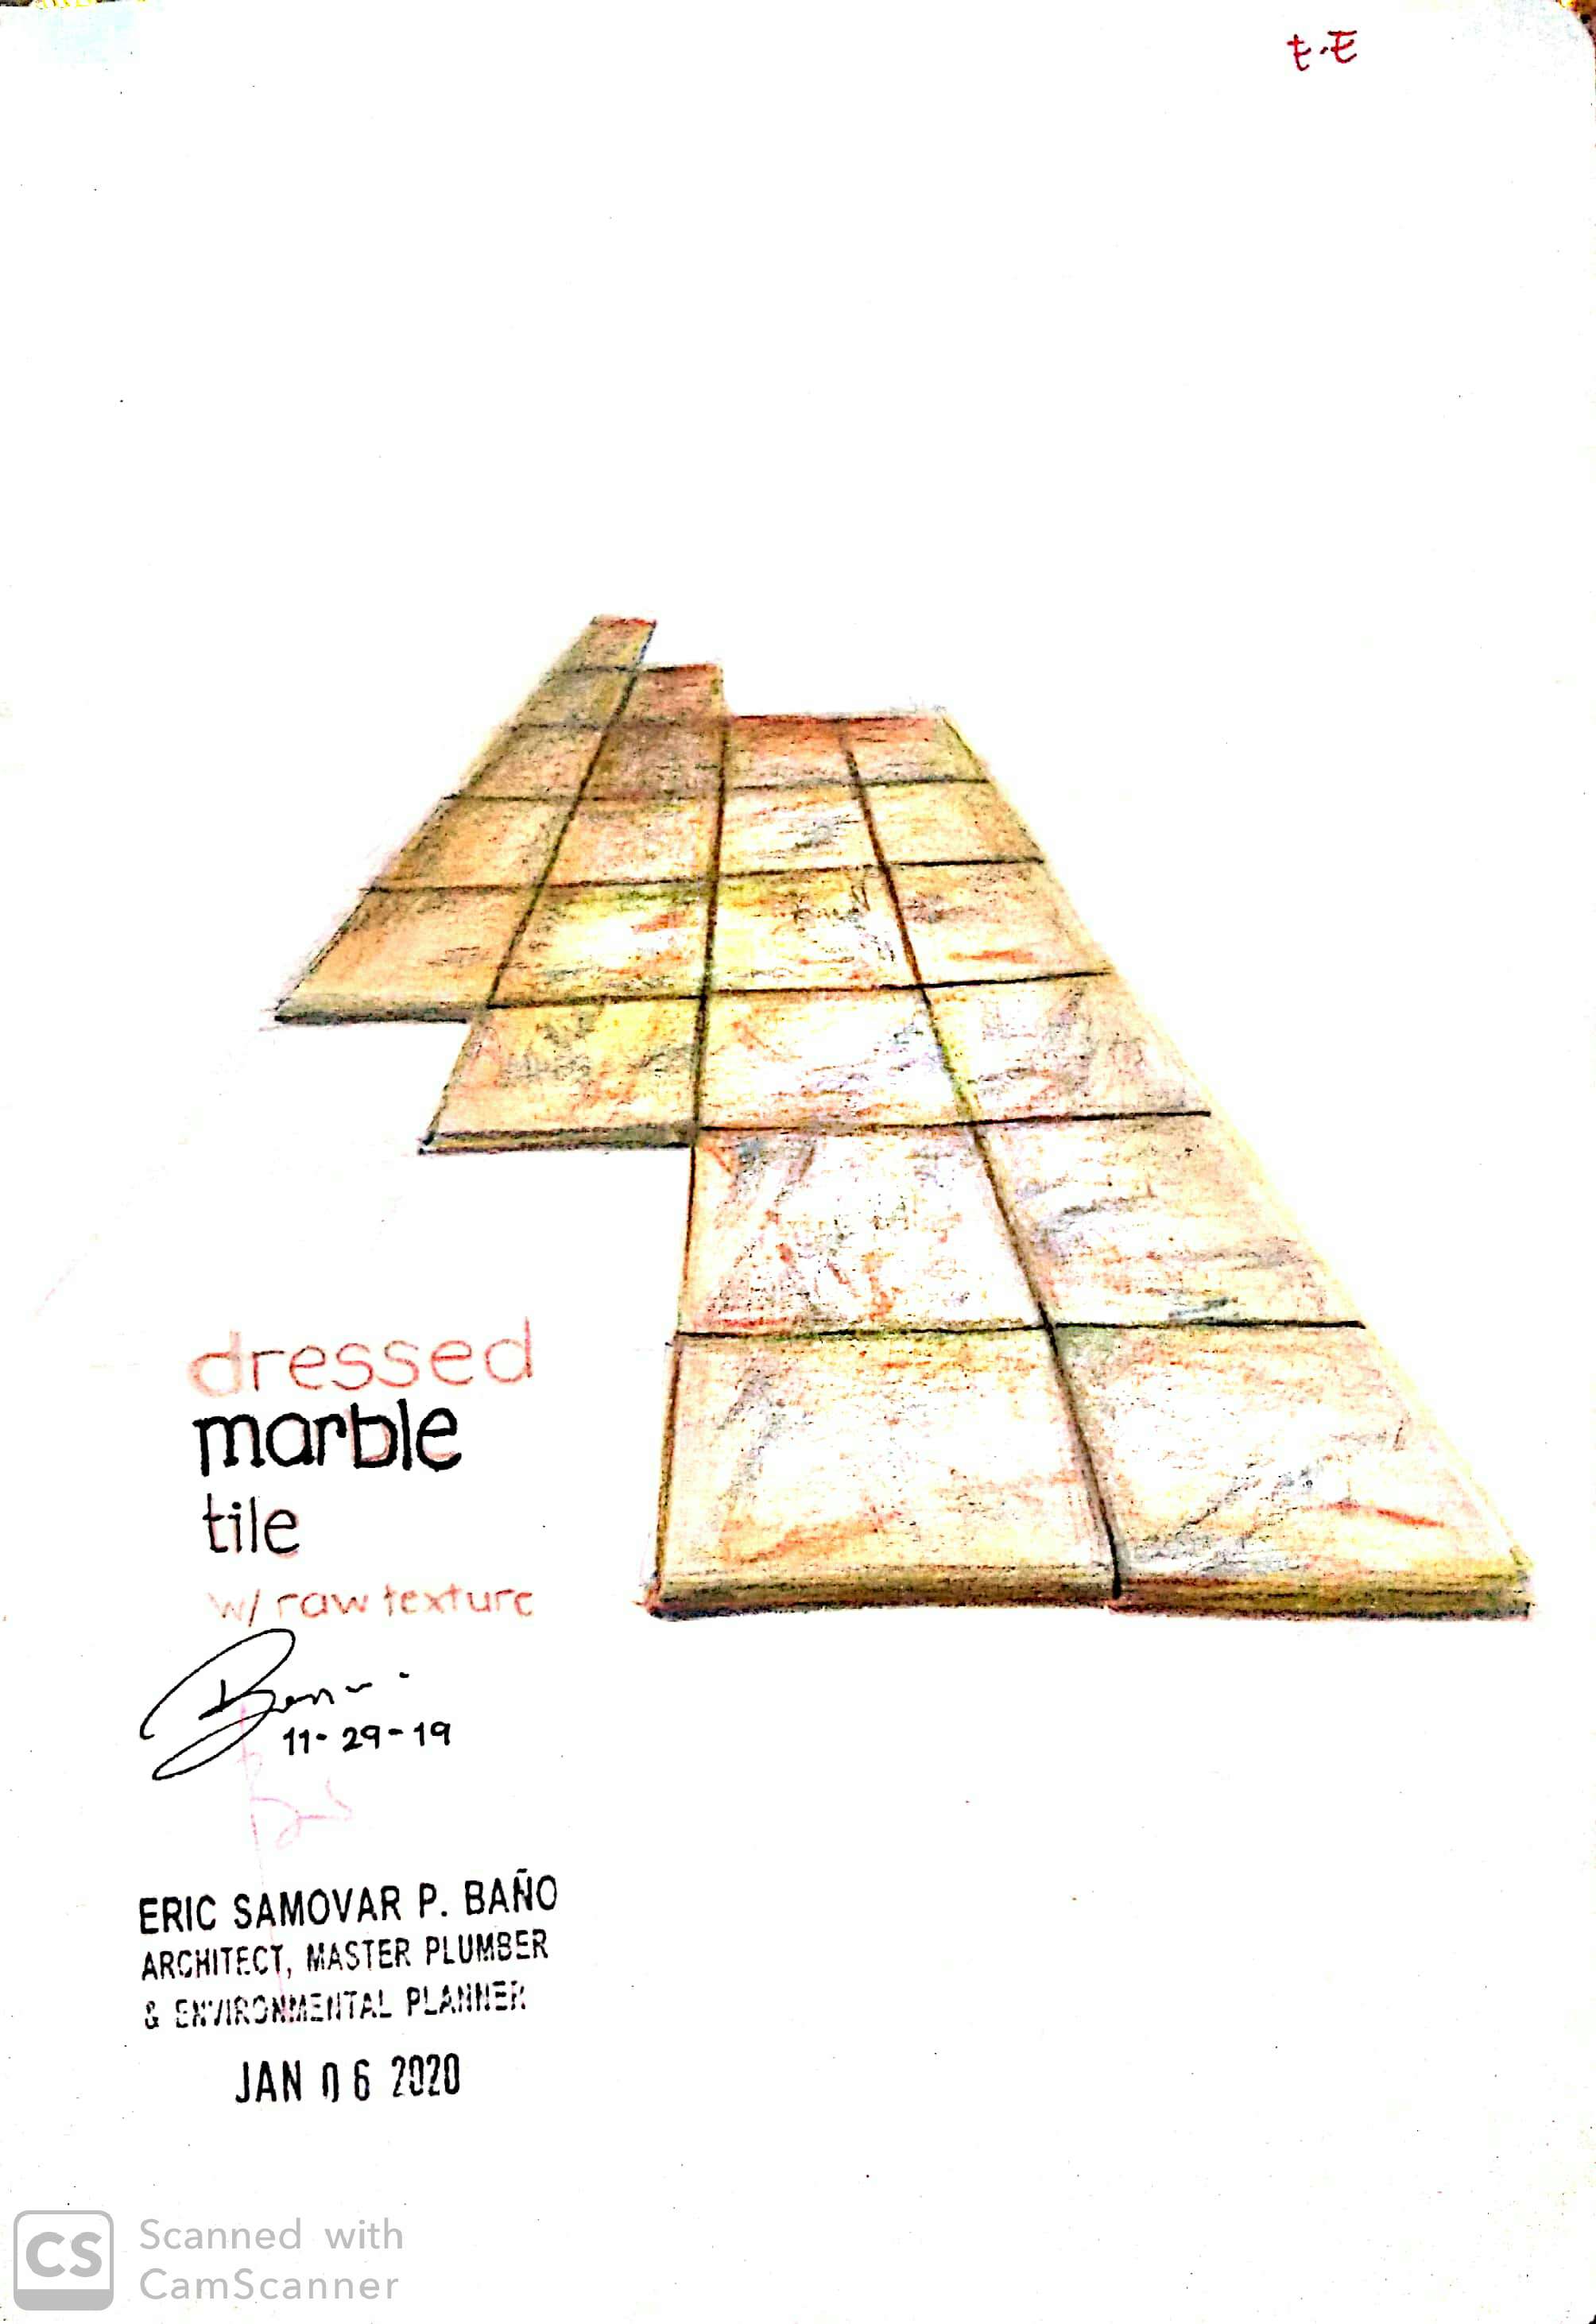 dressed
marble
tile
w/ raw texture
11-29-19
ERIC SAMOVAR P. BAÑO
ARCHITECT, MASTER PLUMBER
& ENVIRONMENTAL PLANNER
JAN 06 2020
CS
Scanned with
CamScanner